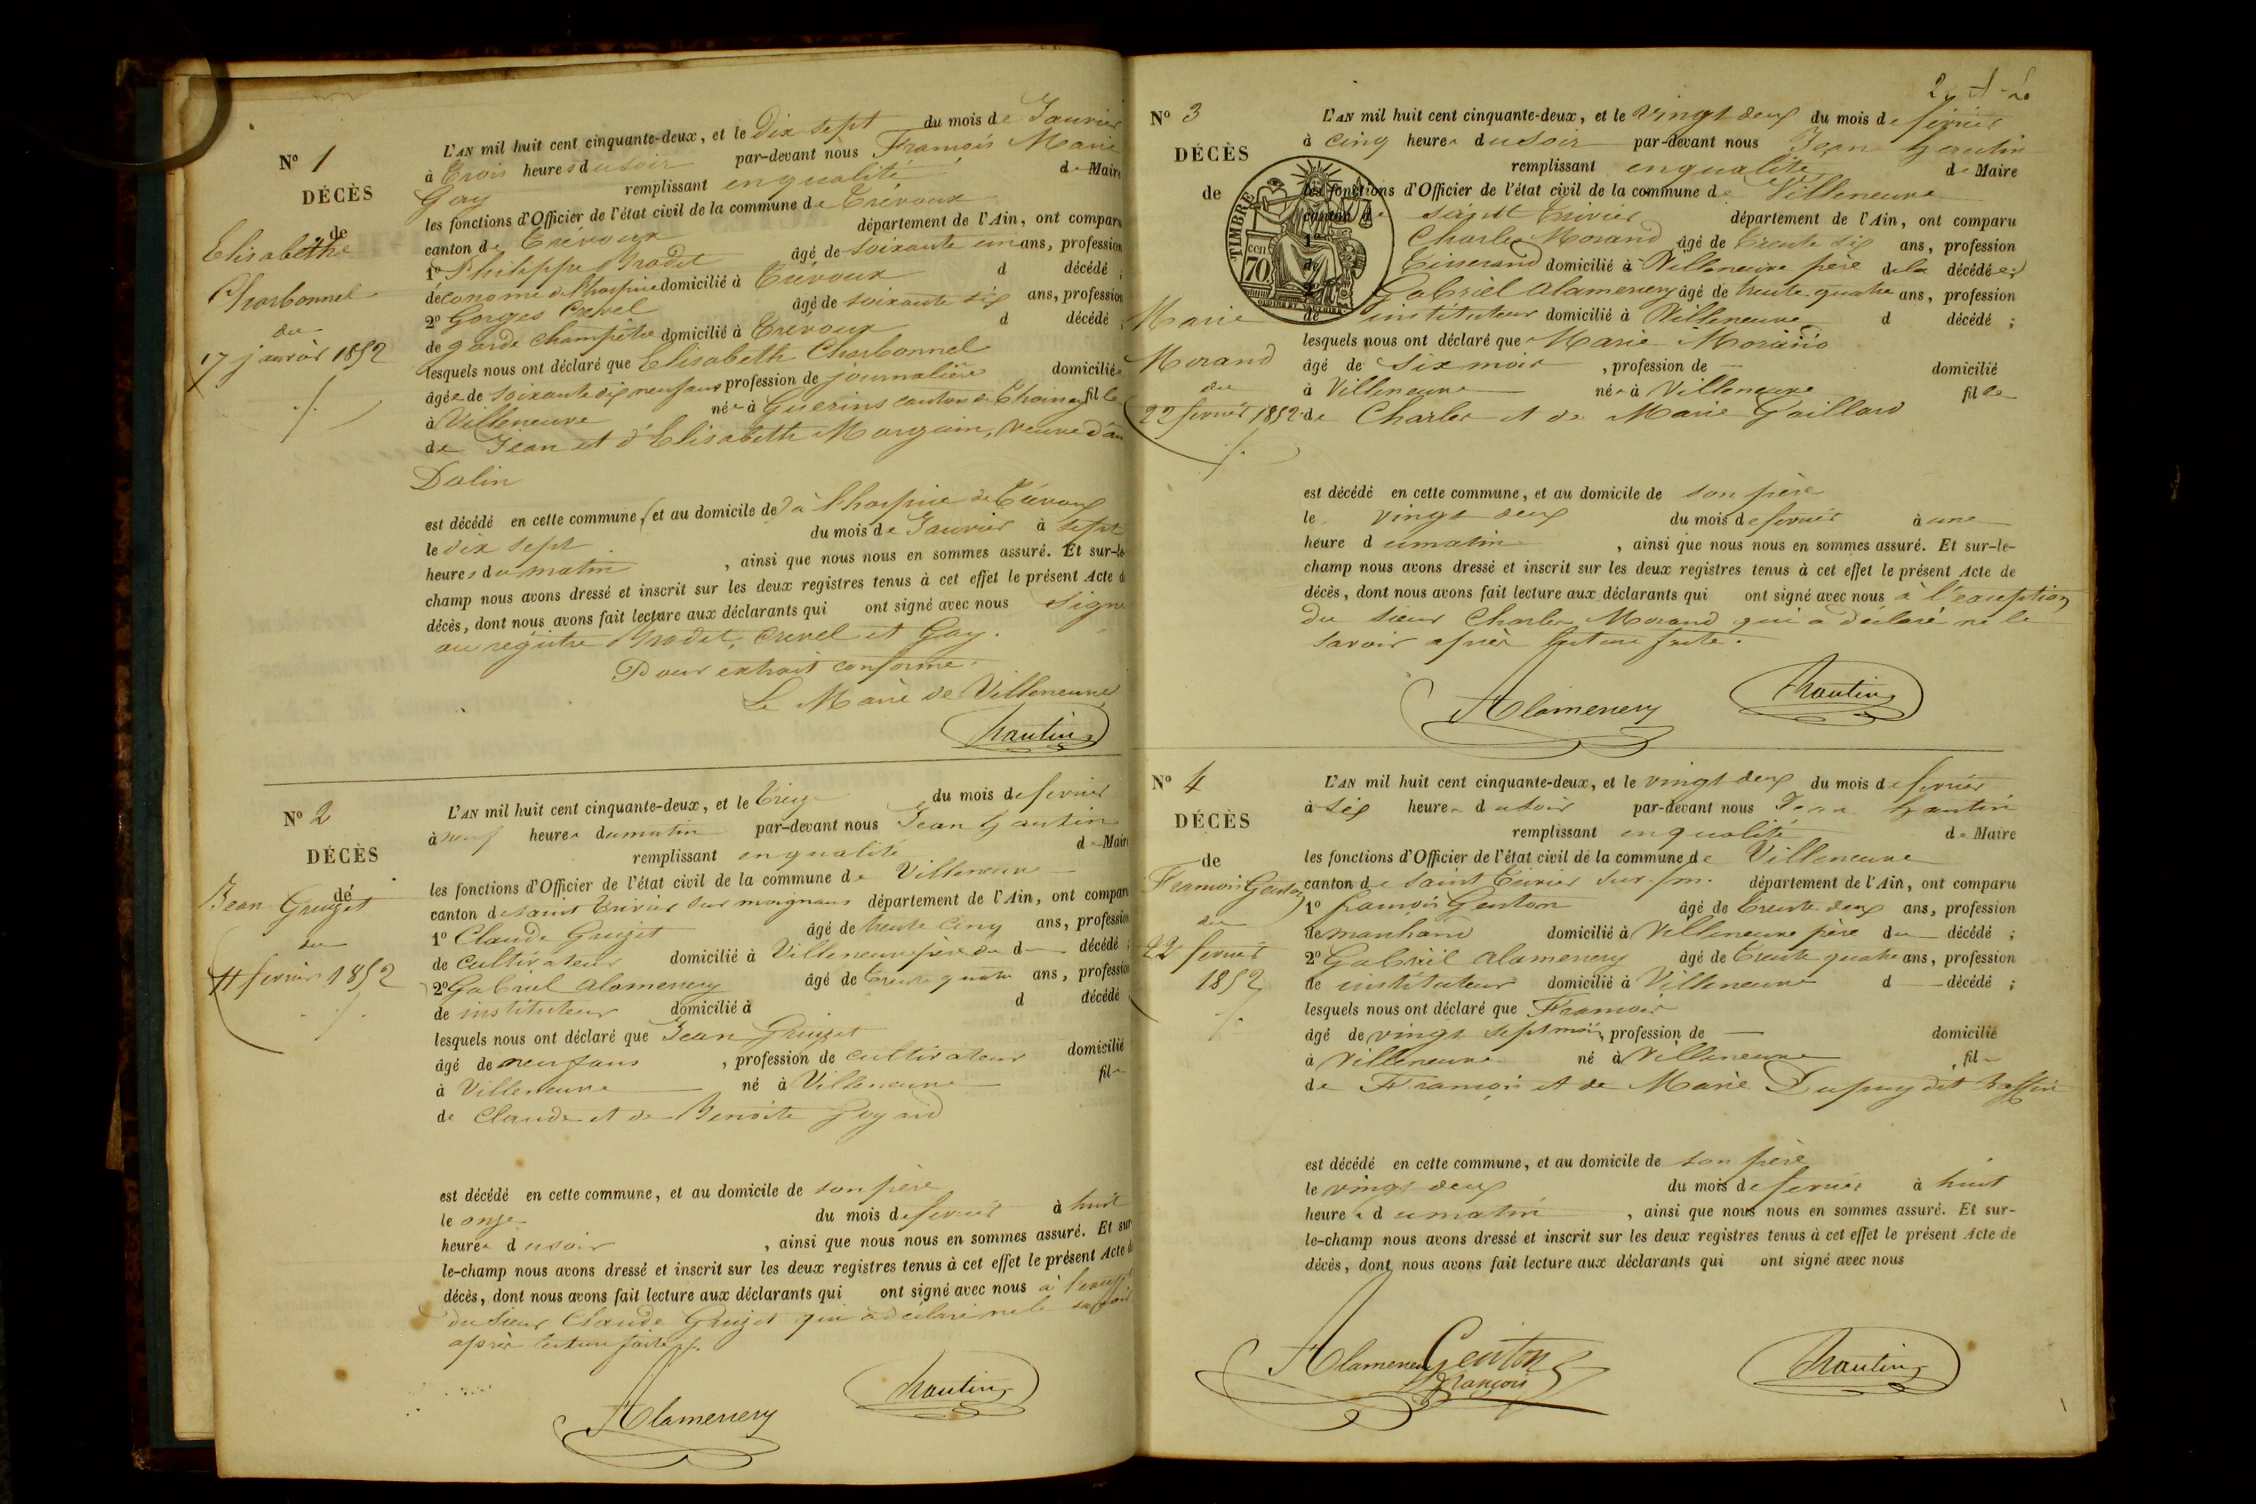 N° 1
DÉCÈS
de
Elisabeth
Charbonnel
du
17 janvier 1852
L'AN mil huit cent cinquante-deux, et le dix sept du mois de Janvier
à trois heures du soir par-devant nous François Marie
Gay remplissant en qualité de Maire
les fonctions d'Officier de l'état civil de la commune de Trévoux
canton de Trévoux département de l'Ain, ont comparu
1° Philippe Brodet âgé de soixante un ans, profession
d'économe de l'hospice domicilié à Trévoux d décédé ;
2° Gorges Crevel âgé de soixante six ans, profession
de garde champêtre domicilié à Trévoux d décédé ;
lesquels nous ont déclaré que Elisabeth Charbonnel
âgée de soixante dix neuf ans profession de journalière domiciliée
à Villeneuve née à Guerins canton de fille
de Jean et d'Elisabeth veuve d'
Dalin
est décédé en cette commune, (et au domicile de) à l'hospice de Trévoux
le dix sept du mois de Janvier à sept
heures du matin, ainsi que nous nous en sommes assuré. Et sur-le-
champ nous avons dressé et inscrit sur les deux registres tenus à cet effet le présent Acte de
décès, dont nous avons fait lecture aux déclarants qui ont signé avec nous signé
au régistre Brodet, Crevel et Gay.
Pour extrait conforme.
Le Maire de Villeneuve
Gautin
N° 2
DÉCÈS
de
Jean Gruzet
du
11 fevrier 1852
L'AN mil huit cent cinquante-deux, et le treize du mois de fevrier
à neuf heures du matin par-devant nous Jean Gautin
remplissant en qualité de Maire
les fonctions d'Officier de l'état civil de la commune de Villeneuve
canton de saint Trivier sur moignans département de l'Ain, ont comparu
1° Claude Gruzet âgé de trente cinq ans, profession
de cultivateur domicilié à Villeneuve père du d décédé ;
2° Gabriel Alamenery âgé de trente quatre ans, profession
de instituteur domicilié à d décédé
lesquels nous ont déclaré que Jean Gruzet
âgé de neuf ans, profession de cultivateur domicilié
à Villeneuve né à Villeneuve fils
de Claude et de Benoite Goyard
est décédé en cette commune, et au domicile de son père
le onze du mois de fevrier à huit
heures du soir, ainsi que nous nous en sommes assuré. Et sur
le-champ nous avons dressé et inscrit sur les deux registres tenus à cet effet le présent Acte de
décès, dont nous avons fait lecture aux déclarants qui ont signé avec nous à l'except
du sieur Claude Gruzet qui a déclaré ne le savoir
après lecture faite.
Alamenery
Gautin
N° 3
DÉCÈS
de
Marie
Morand
du
22 fevrier 1852
TIMBRE
70
L'AN mil huit cent cinquante-deux, et le vingt deux du mois de fevrier
à cinq heures du soir par-devant nous Jean Gautin
remplissant en qualité de Maire
les fonctions d'Officier de l'état civil de la commune de Villeneuve
canton de saint Trivier département de l'Ain, ont comparu
1° Charles Morand âgé de trente six ans, profession
de Tisserand domicilié à Villeneuve père de la décédée ;
2° Gabriel Alamenery âgé de trente quatre ans, profession
de instituteur domicilié à Villeneuve d décédé ;
lesquels nous ont déclaré que Marie Morand
âgé de six mois, profession de — domicilié
à Villeneuve née à Villeneuve fille
de Charles et de Marie Gaillard
est décédé en cette commune, et au domicile de son père
le vingt deux du mois de fevrier à une
heure du matin, ainsi que nous nous en sommes assuré. Et sur-le-
champ nous avons dressé et inscrit sur les deux registres tenus à cet effet le présent Acte de
décès, dont nous avons fait lecture aux déclarants qui ont signé avec nous à l'exception
du sieur Charles Morand qui a déclaré ne le
savoir après lecture faite.
Alamenery
Gautin
N° 4
DÉCÈS
de
François Genton
du
22 fevrier
1852
L'AN mil huit cent cinquante-deux, et le vingt deux du mois de fevrier
à six heures du soir par-devant nous Jean Gautin
remplissant en qualité de Maire
les fonctions d'Officier de l'état civil de la commune de Villeneuve
canton de saint Trivier sur département de l'Ain, ont comparu
1° françois Genton âgé de trente deux ans, profession
de marchand domicilié à Villeneuve père du décédé ;
2° Gabriel Alamenery âgé de trente quatre ans, profession
de instituteur domicilié à Villeneuve d décédé ;
lesquels nous ont déclaré que François
âgé de vingt sept mois, profession de — domicilié
à Villeneuve né à Villeneuve fils
de François et de Marie Dupuy dit
est décédé en cette commune, et au domicile de son père
le vingt deux du mois de fevrier à huit
heures du matin, ainsi que nous nous en sommes assuré. Et sur-
le-champ nous avons dressé et inscrit sur les deux registres tenus à cet effet le présent Acte de
décès, dont nous avons fait lecture aux déclarants qui ont signé avec nous
Alamenery Genton
françois
Gautin